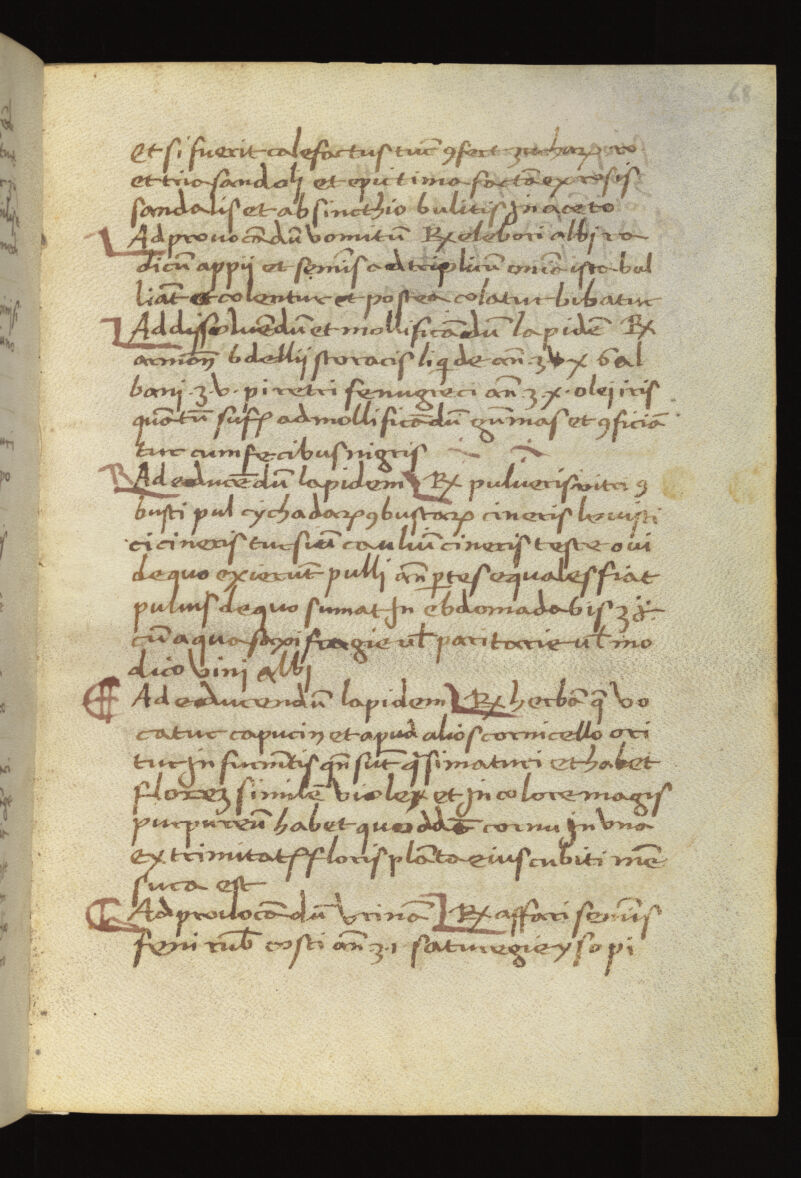 68
et si fuerit calefactus tūc ꝯfert zucharꝝ ro
et tria sandoli et epictima facta ex rosis
sandalis et absincthio bulitis in aceto
Ad prouocādū vomitū ℞ elebori albi ra
dicū appij et semīs omīa ista bul
liāt et colentur et postea colatur bibatur
Ad dissoluēdū et mollificādū lapidē ℞
armoā bdellij storacis liqide añ ʒ x gal
bani ʒ v piretri fenugreci añ ʒ x olei iris
quātū suff ad mollificādū gūmas et ꝯficiā
tur cum fecibus nigris
Ad educēdū lapidem ℞ pulueris vitri ꝯ
busti pul cychadarꝝ ꝯbustarꝝ cineris
cicineris tursiū caulium cineris teste oui
de quo exierūt pulli añ ꝑtes equales fiat
puluis de quo sumat in ebdomada bis ʒ
cū aqua saxifragie ul paritarie ul mo
dico vini albi
Ad educendū lapidem ℞ herbā q̄ vo
catur capucin et apud alios cornicello ori
tur in furmētis qn̄ sūt q̄si maturi et habet
florez similē viole et in colore magis
purpureū habet quoddā cornu in vna
extrimitate floris plāta eius cubiti mē
sura est
Ad prouocādū vrinā ℞ affari semīs
feni rub costi añ ʒ i saturegie ysopi